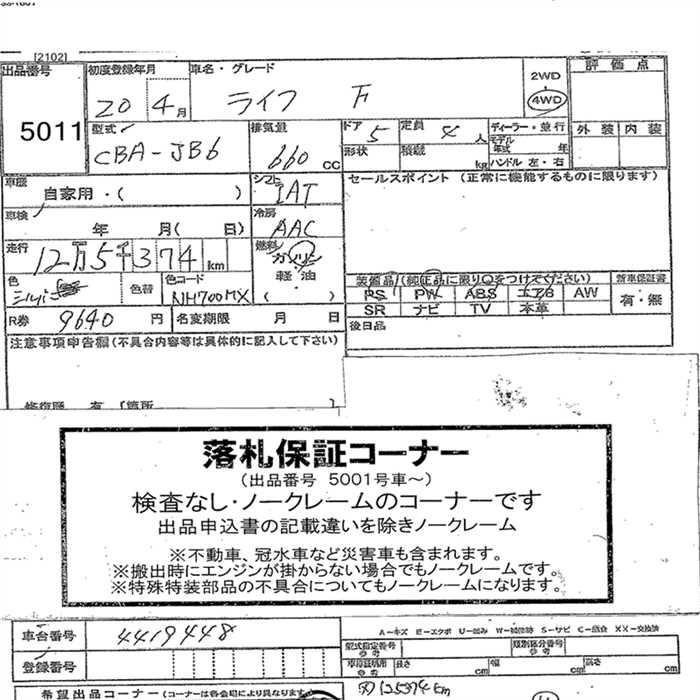 [2102]
出品番号 初度登録年月 車名・グレード 2WD 評価点
5011 20年4月 ライフ F 4WD 外装 内装
型式 排気量 ドア 5 定員 4人 ディーラー・並行
CBA-JB6 660cc 形状 積載 kg モデル年式 年
ハンドル 左・右
車歴 自家用・( ) シフト IAT セールスポイント (正常に機能するものに限ります)
車検 年 月( 日) 冷房 AAC
走行 12万5千374km 燃料 ガソリン
軽・油
( )
色 シルバー 色替 色コード NH700MX
装備品/(純正品に限り○をつけてください) 新車保証書
PS PW ABS エアB AW 有・無
SR ナビ TV 本革
R券 9640円 名変期限 月 日 後日品
注意事項申告欄(不具合内容等は具体的に記入して下さい)
修復歴 有 [箇所
落札保証コーナー
(出品番号 5001号車～)
検査なし・ノークレームのコーナーです
出品申込書の記載違いを除きノークレーム
※不動車、冠水車など災害車も含まれます。
※搬出時にエンジンが掛からない場合でもノークレームです。
※特殊特装部品の不具合についてもノークレームになります。
車台番号 4419448
A-キズ E-エクボ U-凹み W-補修跡 S-サビ C-腐食 XX-交換済
型式指定番号 参考 類別区分番号 参考
登録番号
車庫証明用 参考 長さ cm 幅 cm 高さ cm
希望出品コーナー(コーナーは各会場により異なります)
125374km